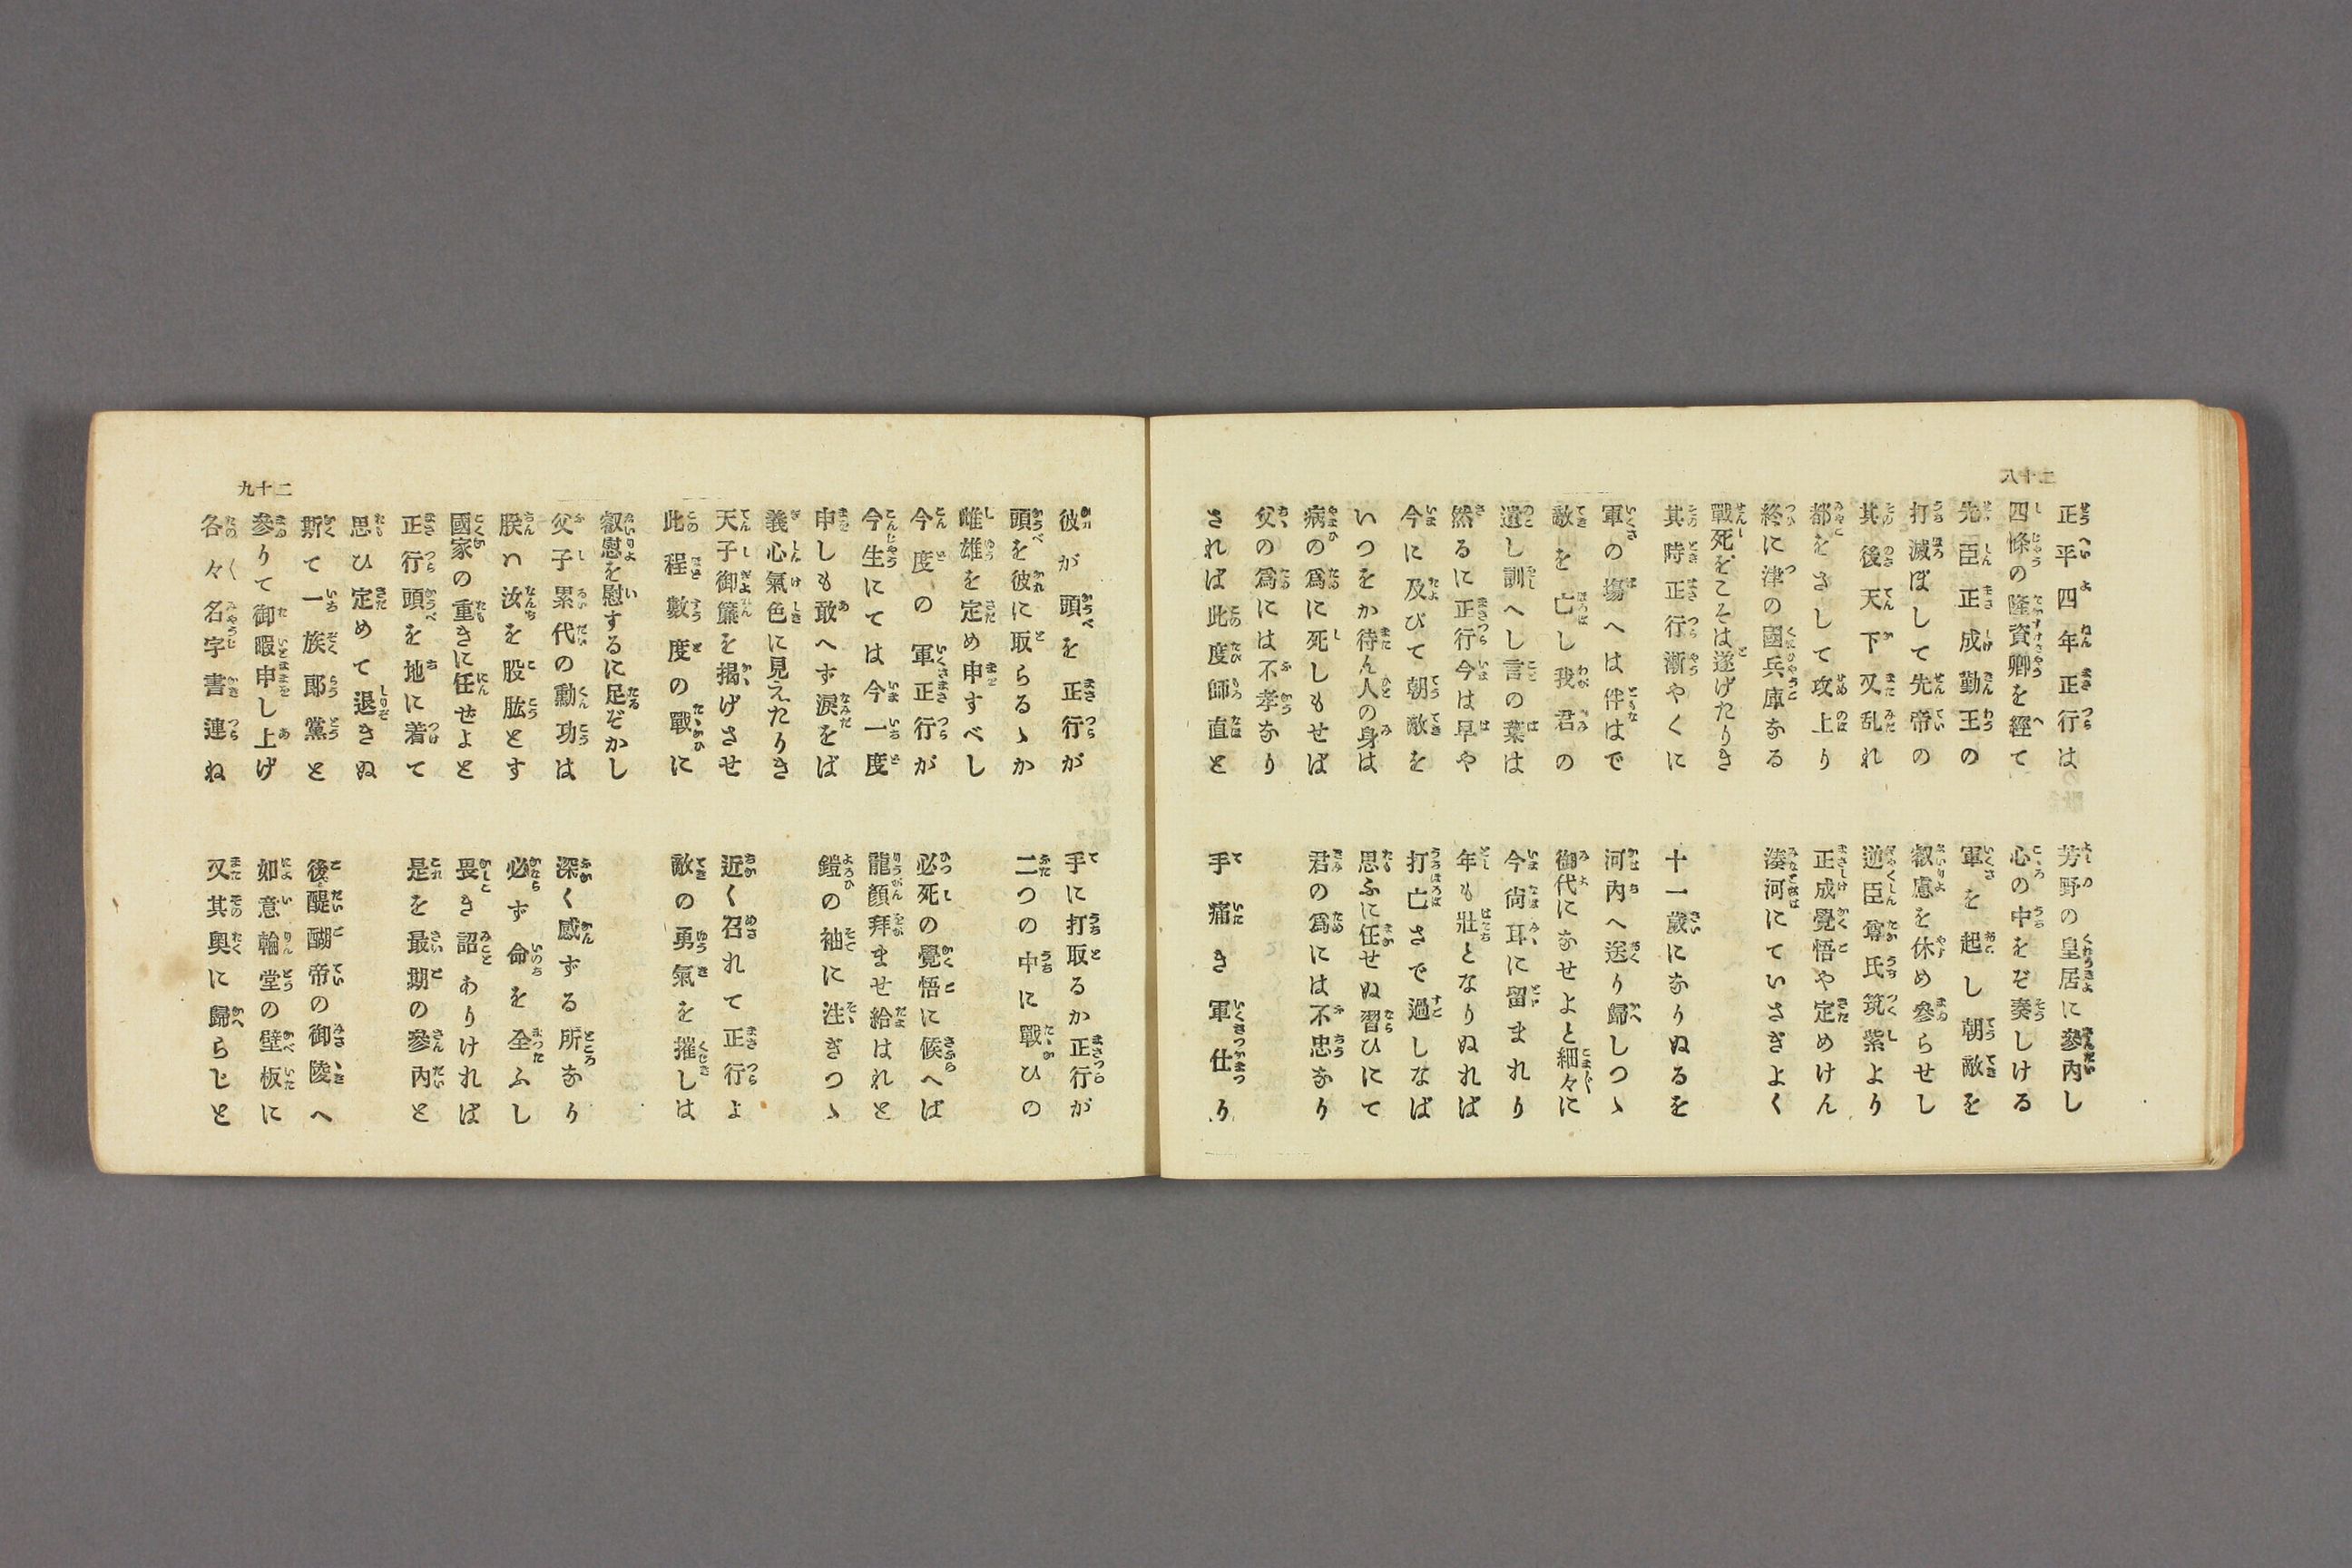 二十八
正平四年正行は　芳野の皇居に參内し
四條の隆資卿を經て　心の中をぞ奏しける
先臣正成勤王の　軍を起し朝敵を
打滅ぼして先帝の　叡慮を休め參らせし
其後天下又乱れ　逆臣尊氏筑紫より
都をさして攻上り　正成覺悟や定めけん
終に津の國兵庫なる　湊河にていさぎよく
戰死をこそは遂げたりき
其時正行漸やくに　十一歳になりぬるを
軍の塲へは伴はで　河内へ送り歸しつゝ
敵を亡し我君の　御代になせよと細々に
遺し訓へし言の葉は　今尚耳に留まれり
然るに正行今は早や　年も壯となりぬれば
今に及びて朝敵を　打亡さで過しなば
いつをか待ん人の身は　思ふに任せぬ習ひにて
病の爲に死しもせば　君の爲には不忠なり
父の爲には不孝なり
されば此度師直と　手痛き軍仕り
二十九
彼が頭を正行が　手に打取るか正行が
頭を彼に取らるゝか　二つの中に戰ひの
雌雄を定め申すべし
今度の軍正行が　必死の覺悟に候へば
今生にては今一度　龍顏拜ませ給はれと
申しも敢へす涙をば　鎧の袖に注ぎつゝ
義心氣色に見えたりき
天子御簾を揭げさせ　近く召れて正行よ
此程數度の戰に　敵の勇氣を摧しは
叡慰を慰するに足ぞかし
父子累代の勳功は　深く感ずる所なり
朕ハ汝を股肱とす　必ず命を全ふし
國家の重きに任せよと　畏き詔ありければ
正行頭を地に着て　是を最期の參内と
思ひ定めて退きぬ
斯て一族郎黨と　後醍醐帝の御陵へ
參りて御暇申し上げ　如意輪堂の壁板に
各々名字書連ね　又其奧に歸らじと